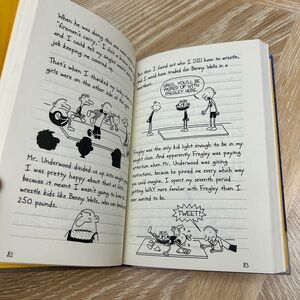 When he was doing the one
"fireman's carry," I felt a
and I could tell my singlet
job keeping me covered up.
That's when I thanked my lucky
girls were on the other side of the gym.
Mr. Underwood divided us into weight
I was pretty happy about that at first,
because it meant I wasn't going to have to
wrestle kids like Benny Wells, who can
250 pounds.
82
But then I found out who I DID have to wrestle,
and I would have traded for Benny Wells in a
heartbeat.
GREG, YOU'LL BE
PAIRED UP WITH
FREGLEY HERE.
Fregley was the only kid light enough to be in my
weight class. And apparently Fregley was paying
attention when Mr. Underwood was giving
instructions, because he pinned me every which way
you could imagine. I spent my seventh period
getting WAY more familiar with Fregley than I
ever wanted to be.
TWEET!
83